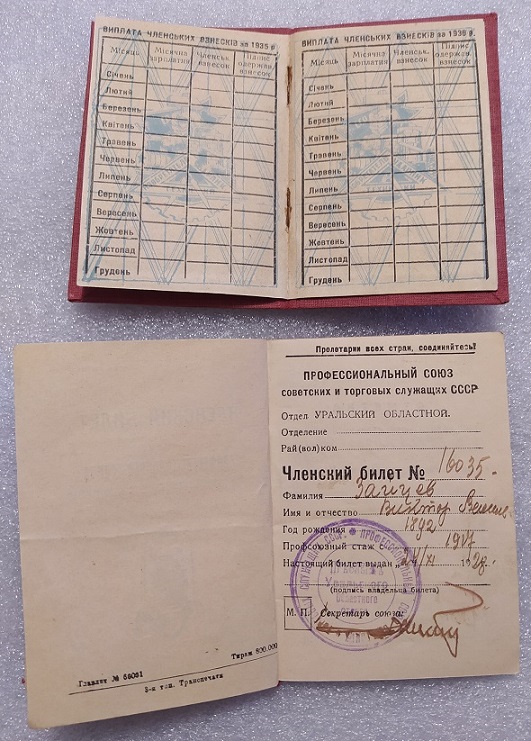 ВИПЛАТА ЧЛЕНСЬКИХ ВЗНЕСКІВ за 1935 р.
Місяць Місячна зарплатня Членськ. взнесок Підпис одержав. внесок
Січень
Лютий
Березень
Квітень
Травень
Червень
Липень
Серпень
Вересень
Жовтень
Листопад
Грудень
ВИПЛАТА ЧЛЕНСЬКИХ ВЗНЕСКІВ за 1936 р.
Місяць Місячна зарплатня Членськ. взнесок Підпис одержав. взнесок
Січень
Лютий
Березень
Квітень
Травень
Червень
Липень
Серпень
Вересень
Жовтень
Листопад
Грудень
Главлит №
Тираж 800.000
3-я тип. Транспечати
Пролетарии всех стран, соединяйтесь!
ПРОФЕССИОНАЛЬНЫЙ СОЮЗ
советских и торговых служащих СССР
Отдел УРАЛЬСКИЙ ОБЛАСТНОЙ.
Отделение
Рай(вол)ком
Членский билет № 16035.
Фамилия Зайцев
Имя и отчество Виктор
Год рождения 1892
Профсоюзный стаж с 1917
Настоящий билет выдан „24/XI 1928.
(подпись владельца билета)
М. П. Секретарь союза: